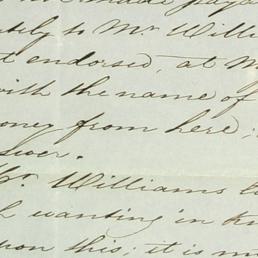 made paya
tely to Mr Willi
t endorsed, at M
with the name of
oney from here;
swer.
Mr. Williams
h wanting in
upon this; it is